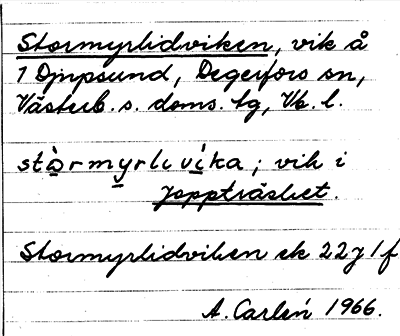 Stormyrlidviken, vik å
1 Djupsund, Degerfors sn,
Västerb. s. doms. tg, Vb. l.
stòrmyrlivíka; vik i
Joppträsket.
Stormyrlidviken ek 22 J 1 f
A. Carlén 1966.